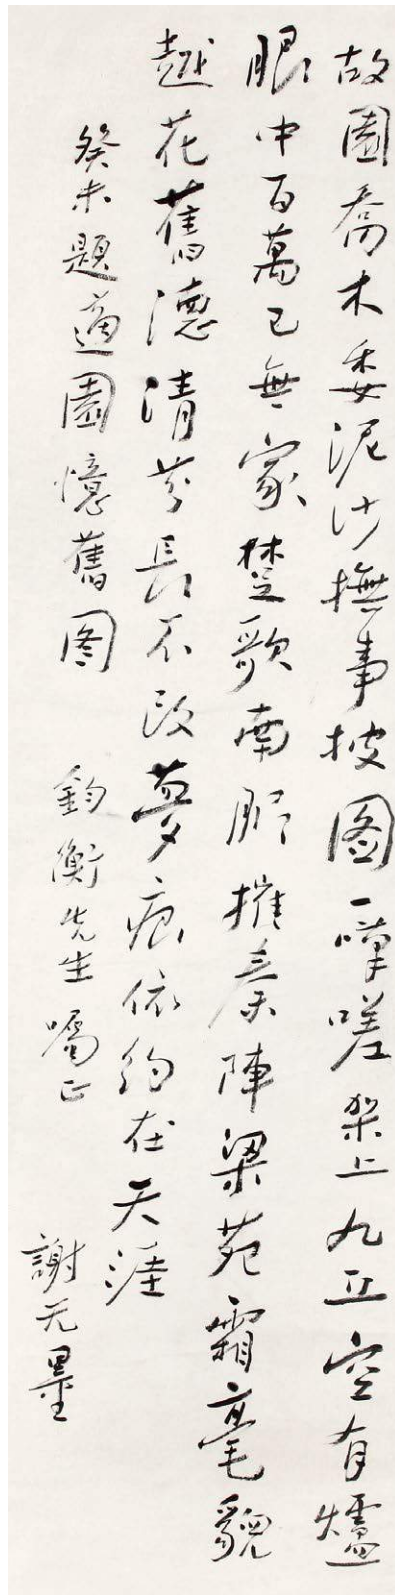 故園喬木委泥沙撫事披图一嘆嗟架上九丘空有爐
眼中百萬已無家楚歌南服摧秦陣梁苑霜毫貌
越花舊德清芬長不改夢痕依約在天涯
癸未題適園憶舊图 鈞衡先生囑正
謝无量